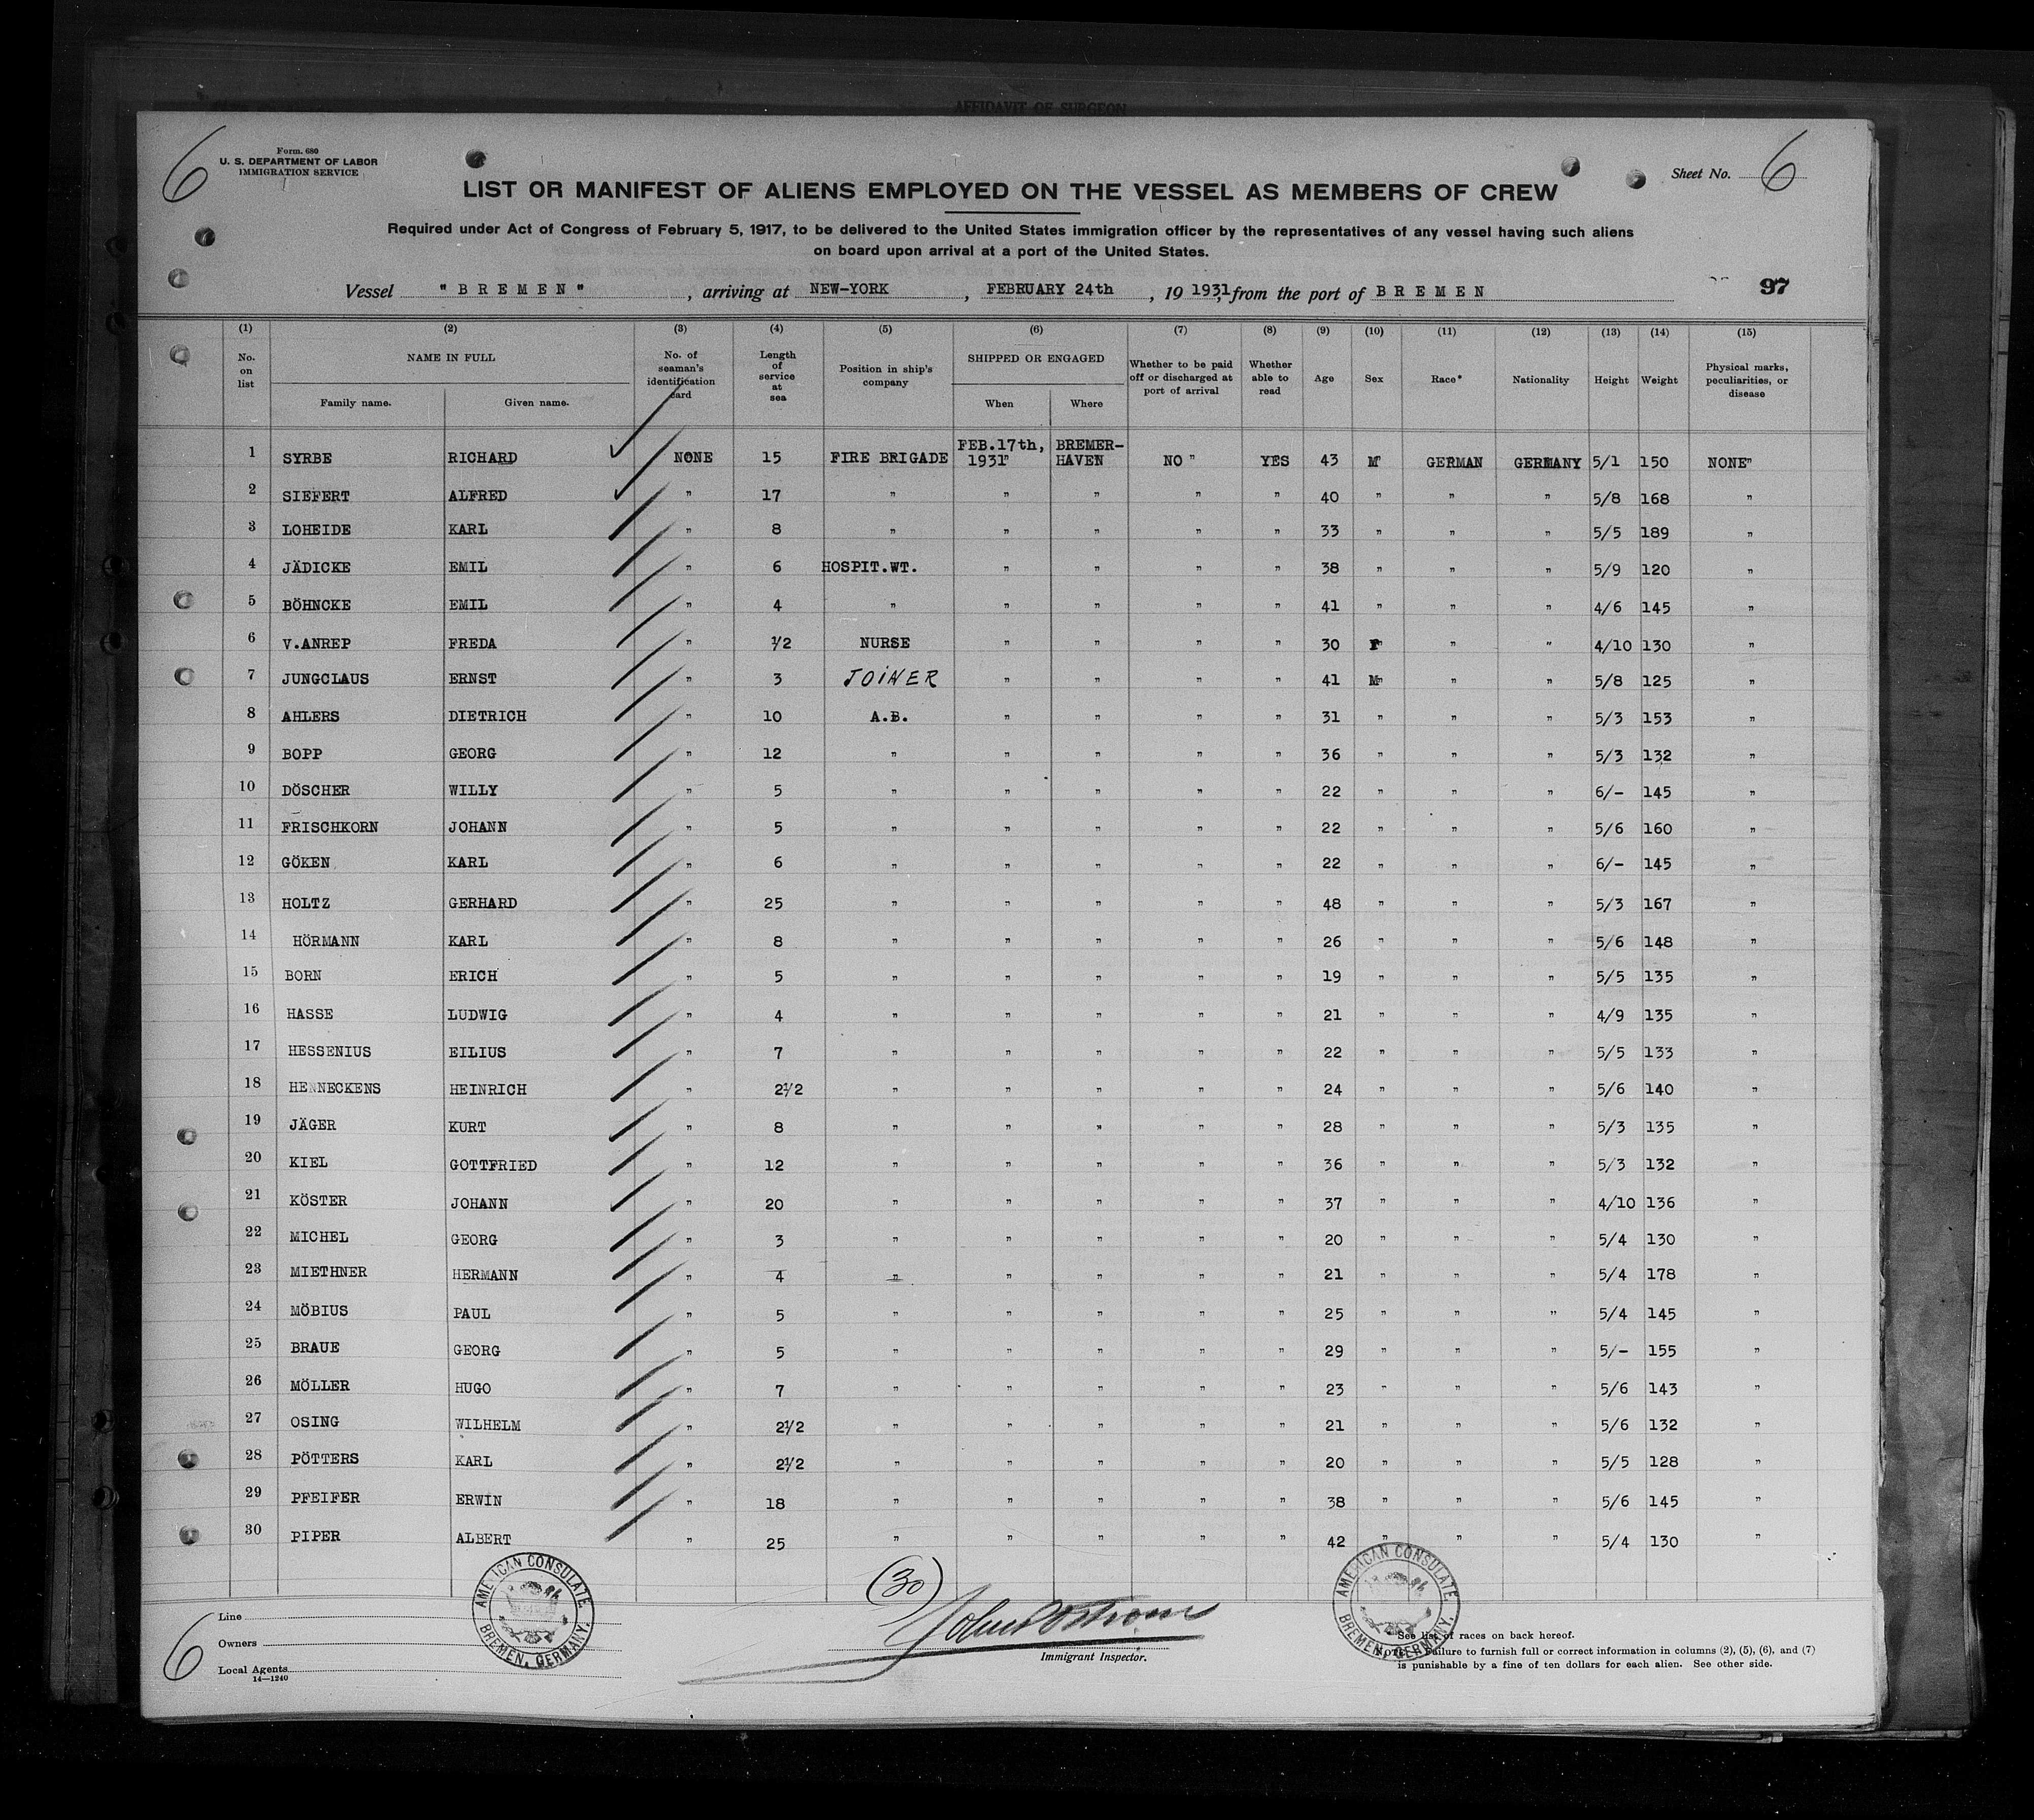 AFFIDAVIT OF SURGEON
6
Form. 680
U. S. DEPARTMENT OF LABOR
IMMIGRATION SERVICE
Sheet No. 6
LIST OR MANIFEST OF ALIENS EMPLOYED ON THE VESSEL AS MEMBERS OF CREW
Required under Act of Congress of February 5, 1917, to be delivered to the United States immigration officer by the representatives of any vessel having such aliens
on board upon arrival at a port of the United States.
Vessel "BREMEN", arriving at NEW-YORK, FEBRUARY 24th, 19 1931, from the port of BREMEN
97
(1) (2) (3) (4) (5) (6) (7) (8) (9) (10) (11) (12) (13) (14) (15)
No. on list NAME IN FULL Family name. Given name. No. of seaman's identification card Length of service at sea Position in ship's company SHIPPED OR ENGAGED When Where Whether to be paid off or discharged at port of arrival Whether able to read Age Sex Race* Nationality Height Weight Physical marks, peculiarities, or disease
1 SYRBE RICHARD NONE 15 FIRE BRIGADE FEB.17th, 1931" BREMER-HAVEN NO " YES 43 M" GERMAN GERMANY 5/1 150 NONE"
2 SIEFERT ALFRED " 17 " " " " " 40 " " " 5/8 168 "
3 LOHEIDE KARL " 8 " " " " " 33 " " " 5/5 189 "
4 JÄDICKE EMIL " 6 HOSPIT.WT. " " " " 38 " " " 5/9 120 "
5 BÖHNCKE EMIL " 4 " " " " " 41 " " " 4/6 145 "
6 V.ANREP FREDA " 1/2 NURSE " " " " 30 F" " " 4/10 130 "
7 JUNGCLAUS ERNST " 3 JOINER " " " " 41 M" " " 5/8 125 "
8 AHLERS DIETRICH " 10 A.B. " " " " 31 " " " 5/3 153 "
9 BOPP GEORG " 12 " " " " " 36 " " " 5/3 132 "
10 DÖSCHER WILLY " 5 " " " " " 22 " " " 6/- 145 "
11 FRISCHKORN JOHANN " 5 " " " " " 22 " " " 5/6 160 "
12 GÖKEN KARL " 6 " " " " " 22 " " " 6/- 145 "
13 HOLTZ GERHARD " 25 " " " " " 48 " " " 5/3 167 "
14 HÖRMANN KARL " 8 " " " " " 26 " " " 5/6 148 "
15 BORN ERICH " 5 " " " " " 19 " " " 5/5 135 "
16 HASSE LUDWIG " 4 " " " " " 21 " " " 4/9 135 "
17 HESSENIUS EILIUS " 7 " " " " " 22 " " " 5/5 133 "
18 HENNECKENS HEINRICH " 2 1/2 " " " " " 24 " " " 5/6 140 "
19 JÄGER KURT " 8 " " " " " 28 " " " 5/3 135 "
20 KIEL GOTTFRIED " 12 " " " " " 36 " " " 5/3 132 "
21 KÖSTER JOHANN " 20 " " " " " 37 " " " 4/10 136 "
22 MICHEL GEORG " 3 " " " " " 20 " " " 5/4 130 "
23 MIETHNER HERMANN " 4 " " " " " 21 " " " 5/4 178 "
24 MÖBIUS PAUL " 5 " " " " " 25 " " " 5/4 145 "
25 BRAUE GEORG " 5 " " " " " 29 " " " 5/- 155 "
26 MÖLLER HUGO " 7 " " " " " 23 " " " 5/6 143 "
27 OSING WILHELM " 2 1/2 " " " " " 21 " " " 5/6 132 "
28 PÖTTERS KARL " 2 1/2 " " " " " 20 " " " 5/5 128 "
29 PFEIFER ERWIN " 18 " " " " " 38 " " " 5/6 145 "
30 PIPER ALBERT " 25 " " " " " 42 " " " 5/4 130 "
(30)
AMERICAN CONSULATE, BREMEN, GERMANY.
AMERICAN CONSULATE, BREMEN, GERMANY.
6
Line
Owners
Local Agents
14—1240
Immigrant Inspector.
See list of races on back hereof.
NOTE.—Failure to furnish full or correct information in columns (2), (5), (6), and (7)
is punishable by a fine of ten dollars for each alien. See other side.